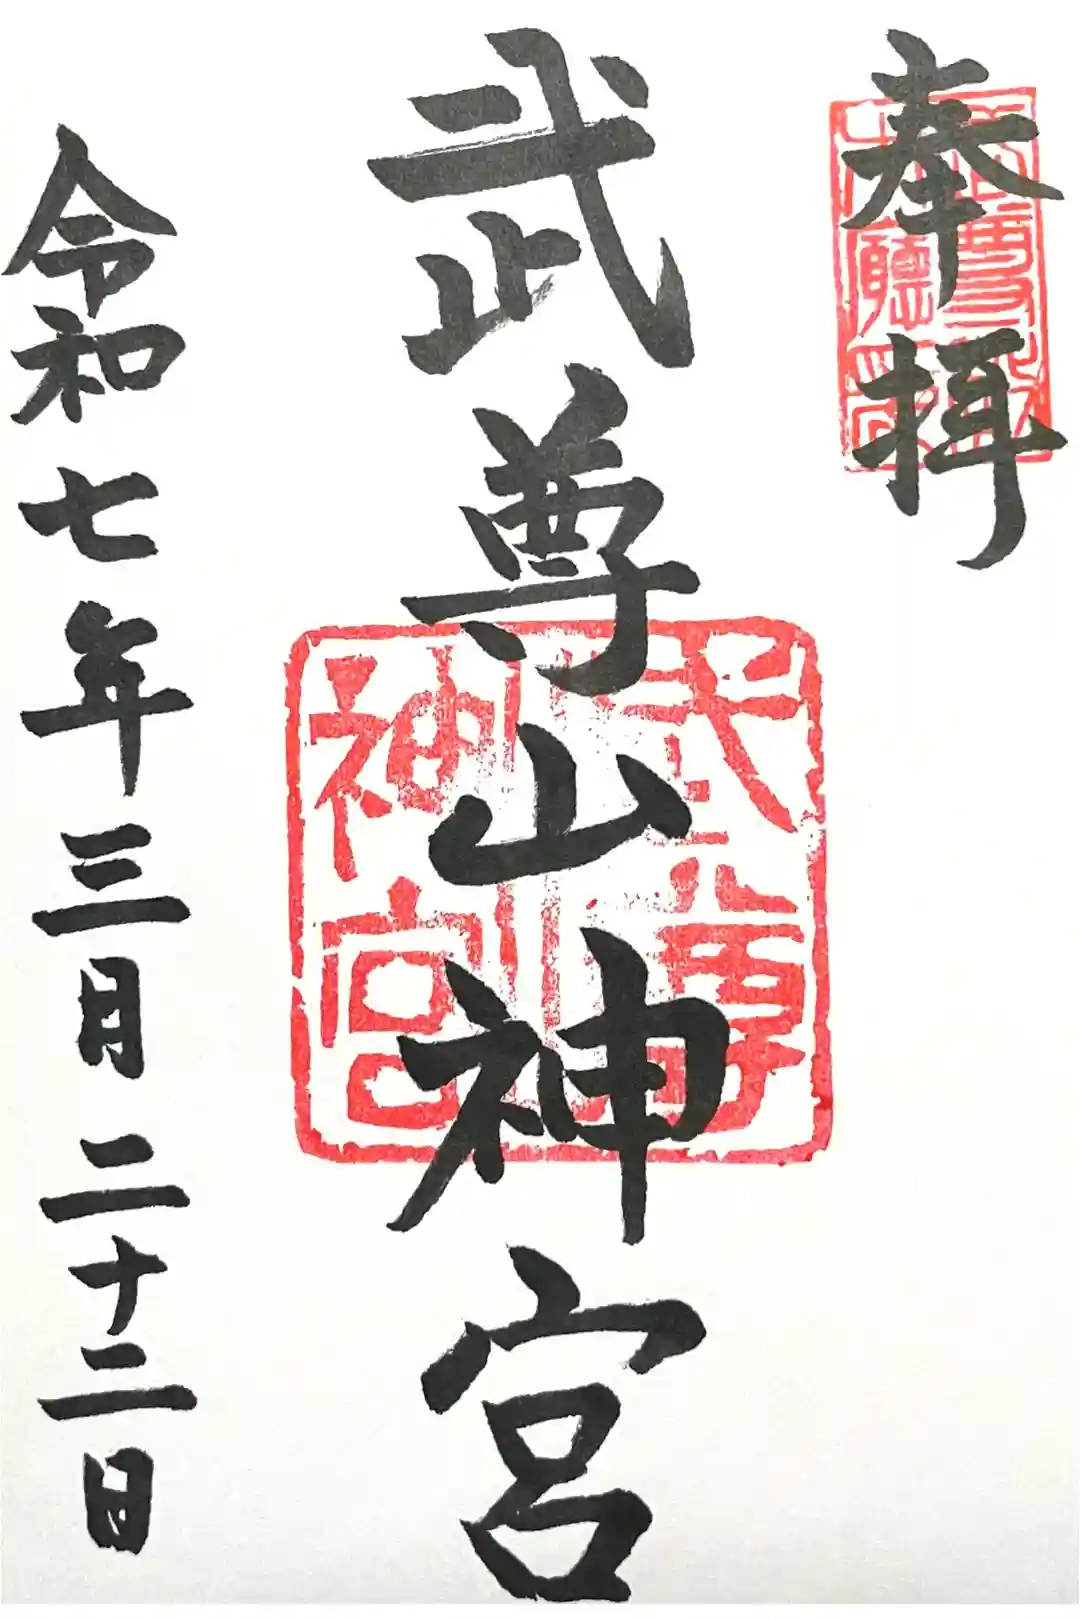 奉拝
武尊山神宮
令和七年三月二十二日
武尊山神宮